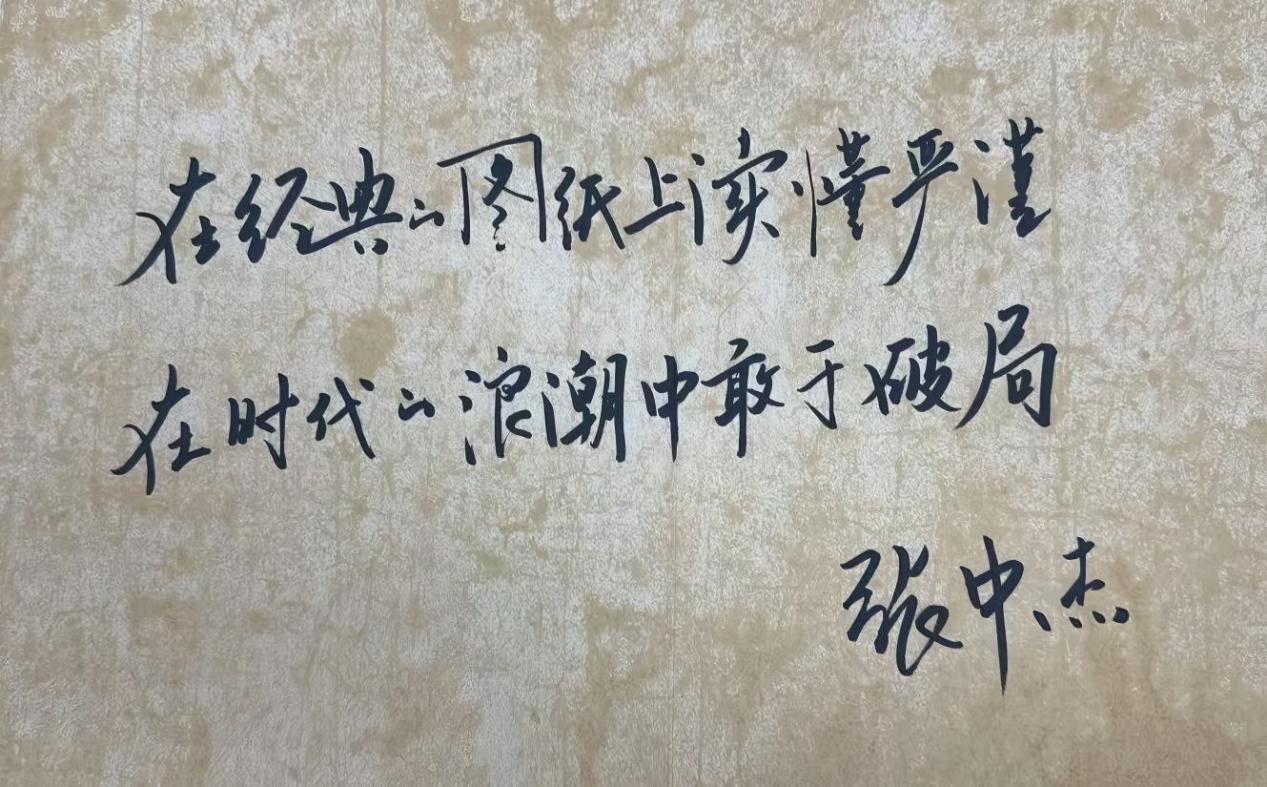 在经典的图纸上读懂严谨
在时代的浪潮中敢于破局
张中杰